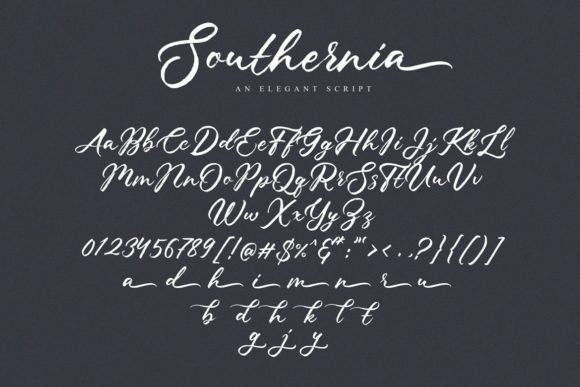 Southernia
AN ELEGANT SCRIPT
AaBbCcDdEeFfGgHhIiJjKkLl
MmNnOoPpQqRrSsTtUuVv
WwXxYyZz
0123456789[!@#$%^&*:"'><.,?}{()]
a d h i m n r u
b d h k l t
g j y